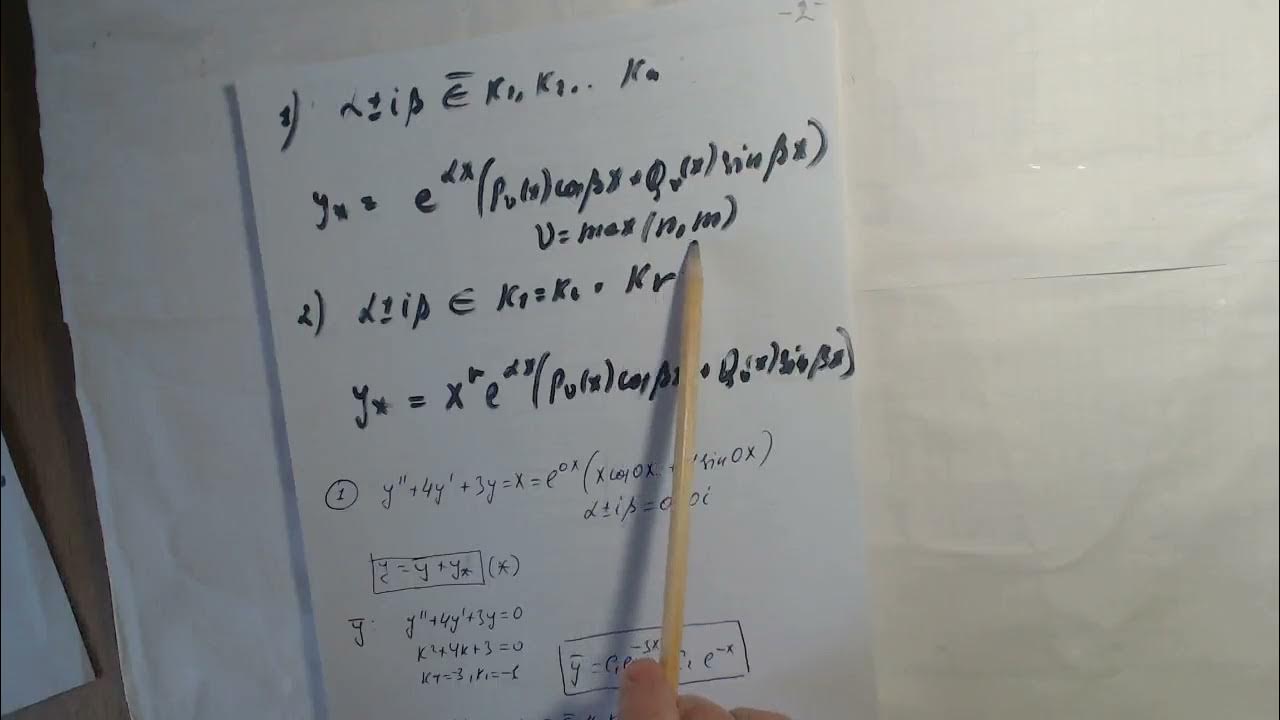 -2-
1) α±iβ ∈̅ K₁, K₂.. Kₙ
y* = e^αx (Pᵥ(x)cosβx + Qᵥ(x)sinβx)
ν = max(n, m)
2) α±iβ ∈ K₁=K₂ . Kr
y* = x^r e^αx (Pᵥ(x)cosβx + Qᵥ(x)sinβx)
① y''+4y'+3y=x=e^0x (xcos0x + sin0x)
α±iβ=0 0i
y = y̅ + y* (*)
y̅: y''+4y'+3y=0
k²+4k+3=0
k₁=-3, k₂=-1
y̅ = C₁e^-3x e^-x